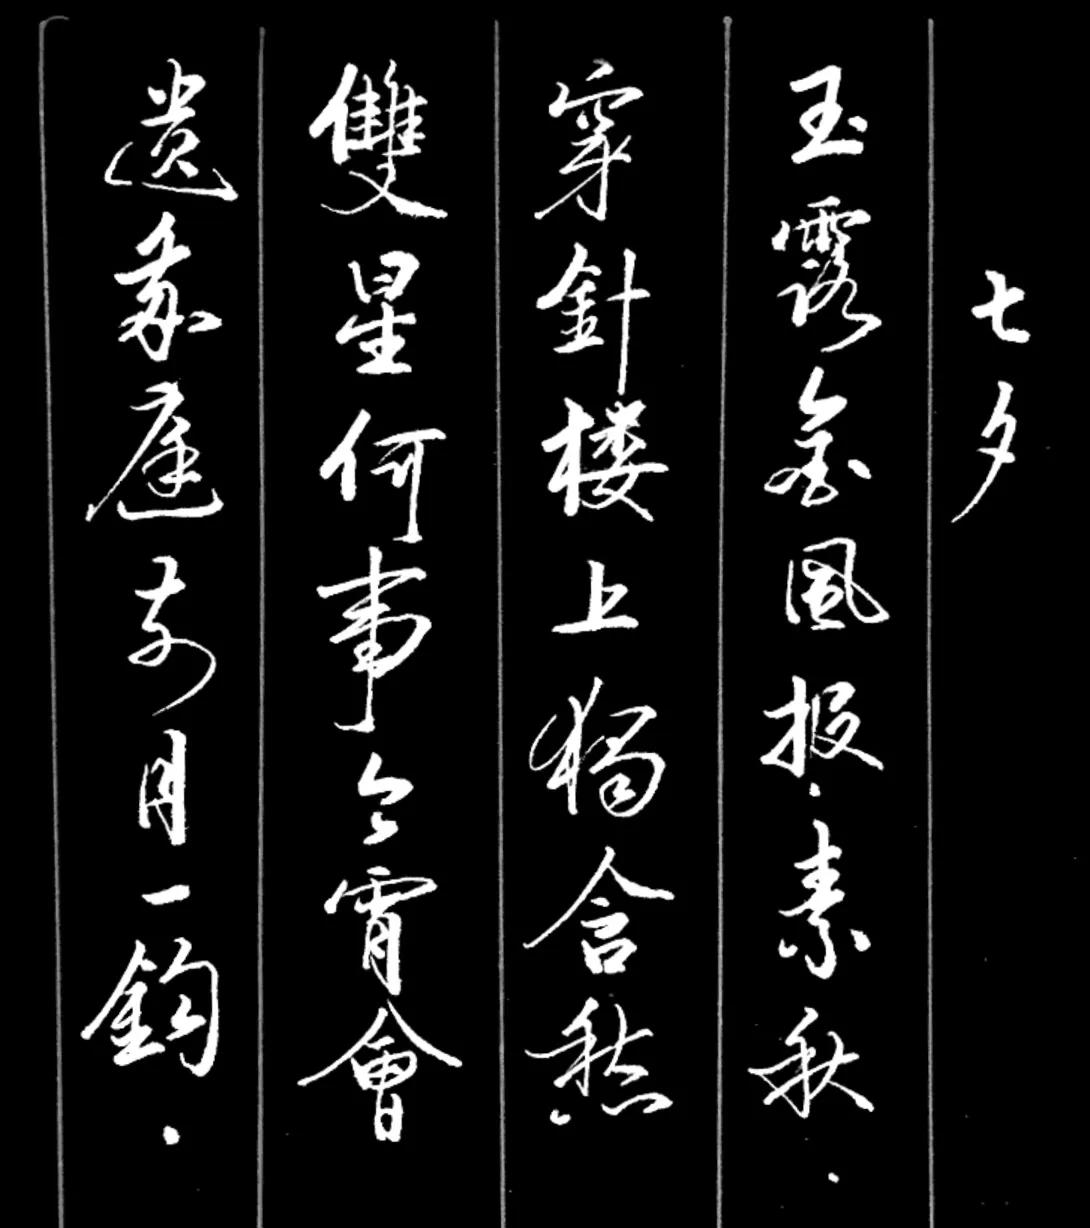 七夕
玉露金風报素秋.
穿針楼上獨含愁
雙星何事今霄會
遗我庭前月一鈎.